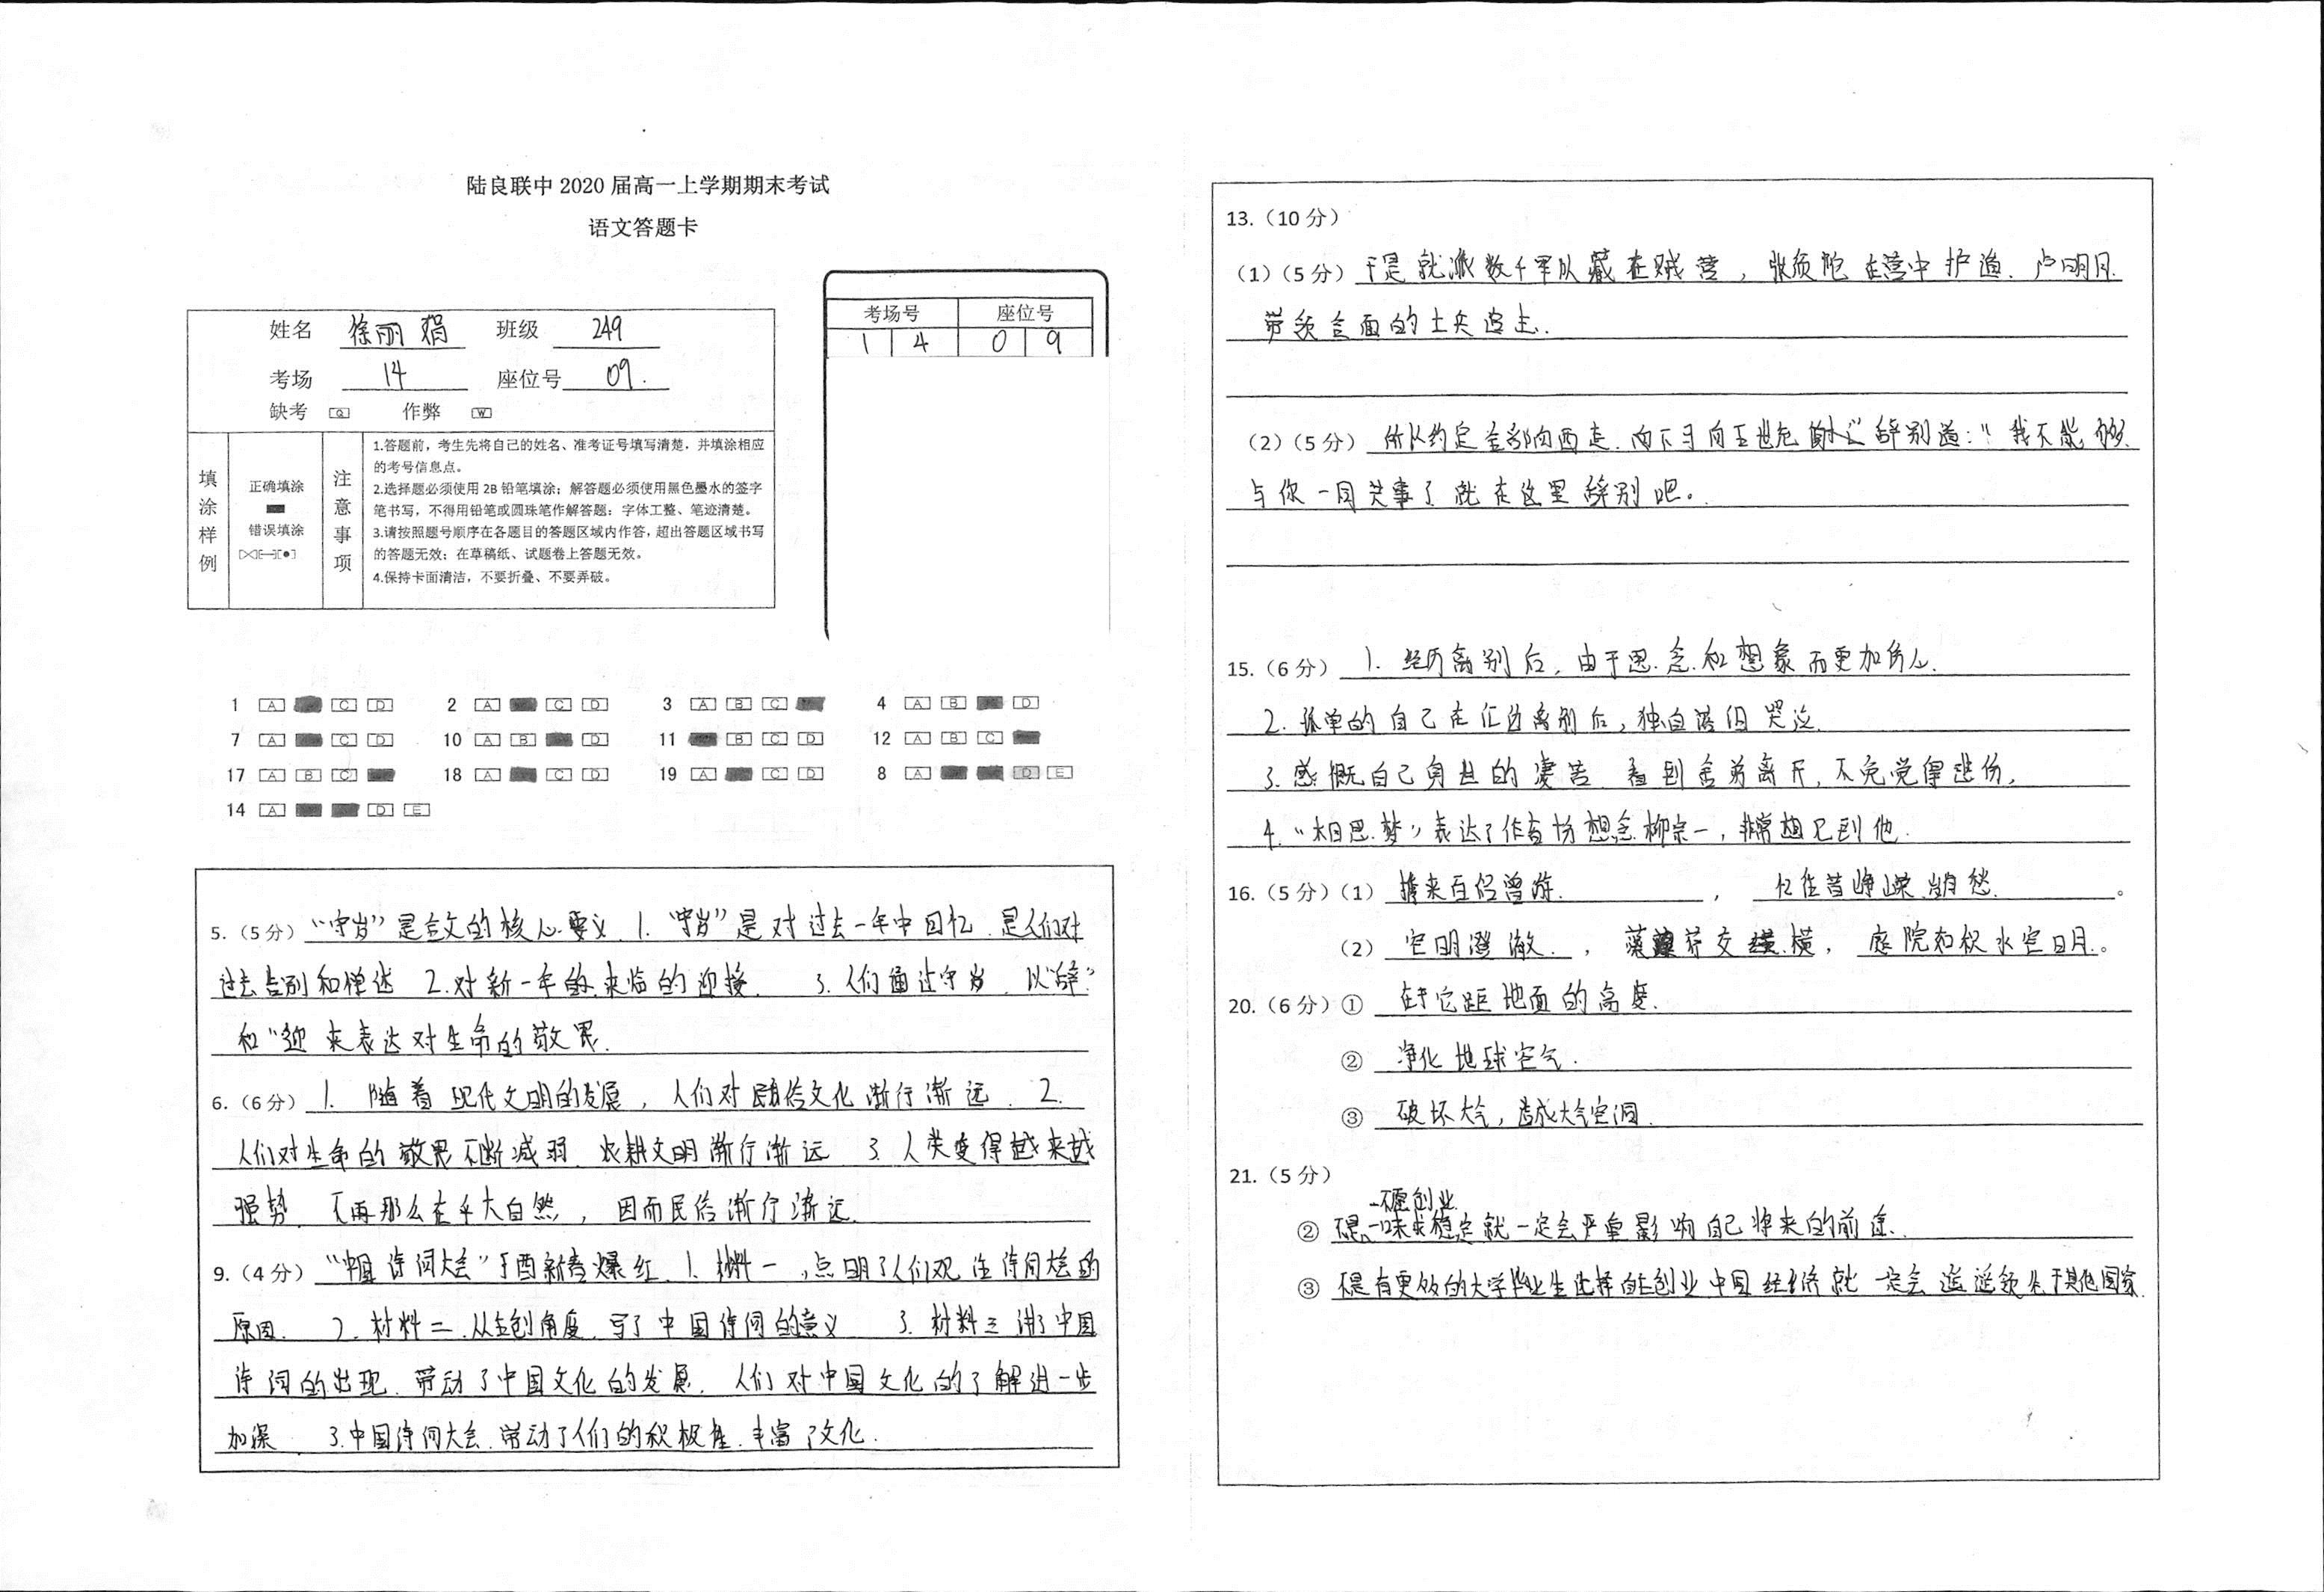 陆良联中 2020 届高一上学期期末考试
语文答题卡
姓名 徐丽娟 班级 249
考场 14 座位号 09.
缺考 Q 作弊 W
考场号 座位号
1 4 0 9
填涂样例
正确填涂
错误填涂
注意事项
1.答题前，考生先将自己的姓名、准考证号填写清楚，并填涂相应
的考号信息点。
2.选择题必须使用 2B 铅笔填涂；解答题必须使用黑色墨水的签字
笔书写，不得用铅笔或圆珠笔作解答题：字体工整、笔迹清楚。
3.请按照题号顺序在各题目的答题区域内作答，超出答题区域书写
的答题无效；在草稿纸、试题卷上答题无效。
4.保持卡面清洁，不要折叠、不要弄破。
1 A C D 2 A C D 3 A B C 4 A B D
7 A C D 10 A B D 11 B C D 12 A B C
17 A B C 18 A C D 19 A C D 8 A D E
14 A D E
5.（5 分）“守岁”是全文的核心要义. 1. “守岁”是对过去一年中回忆. 是人们对
过去告别和 2.对新一年的.来临的迎接. 3. 人们通过守岁. 以“辞”
和“迎 来表达对生命的敬畏.
6.（6 分）1. 随着现代文明的发展，人们对民俗文化渐行渐远. 2.
人们对生命的敬畏不断减弱. 农耕文明渐行渐远 3. 人类变得越来越
强势. 不再那么在乎大自然，因而民俗渐行渐远.
9.（4 分）“中国诗词大会”于酉新春爆红. 1. 材料一，点明了人们观注诗词大会的
原因. 2. 材料二.从主创角度.写了中国诗词的意义 3. 材料三讲了中国
诗词的出现.带动了中国文化的发展. 人们对中国文化的了解进一步
加深. 3.中国诗词大会.带动了人们的积极性.丰富了文化.
13.（10 分）
（1）（5 分）于是就派数千军队藏在贼营，张须陀在营中护道. 卢明月.
带领全面的士兵追击.
（2）（5 分）所以约定全部向西走. 向王世充 辞别道：“我不能够.
与你一同共事了就在这里辞别吧。
15.（6 分）1. 经历离别后，由于思.念.和想象而更加伤心.
2. 孤单的自己在江边离别后，独自落泪哭泣.
3. 感慨自己身世的凄苦. 看到舍弟离开，不免觉得悲伤，
4. “相思.梦”表达了作者 想念柳宗一，非常想见到他.
16.（5 分）（1）携来百侣曾游. ， 忆往昔峥嵘岁月愁. 。
（2）空明澄澈. ，藻 荇交 横，庭院如积水空明. 。
20.（6 分）① 在于它距地面的高度.
② 净化地球空气.
③ 破坏大气，造成大气空洞.
21.（5 分）
不愿创业
② 不是一味求稳定就一定会严重影响自己将来的前途.
③ 不是有更多的大学毕业生选择自主创业中国经济就一定会遥遥领先于其他国家.